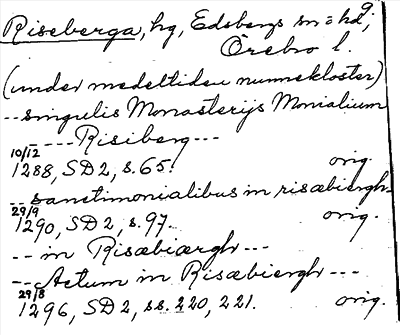 Riseberga, hg, Edsbergs sn o hd,
Örebro l.
(under medeltiden nunnekloster)
-- singulis Monasterijs Monialium
---- Risiberg ---
10/12
1288, SD 2, s. 65. orig.
-- sanctimonialibus in risæbiergh
29/9
1290, SD 2, s. 97. orig.
-- in Risæbiærgh ---
-- Actum in Risæbiergh ---
29/8
1296, SD 2, ss. 220, 221. orig.